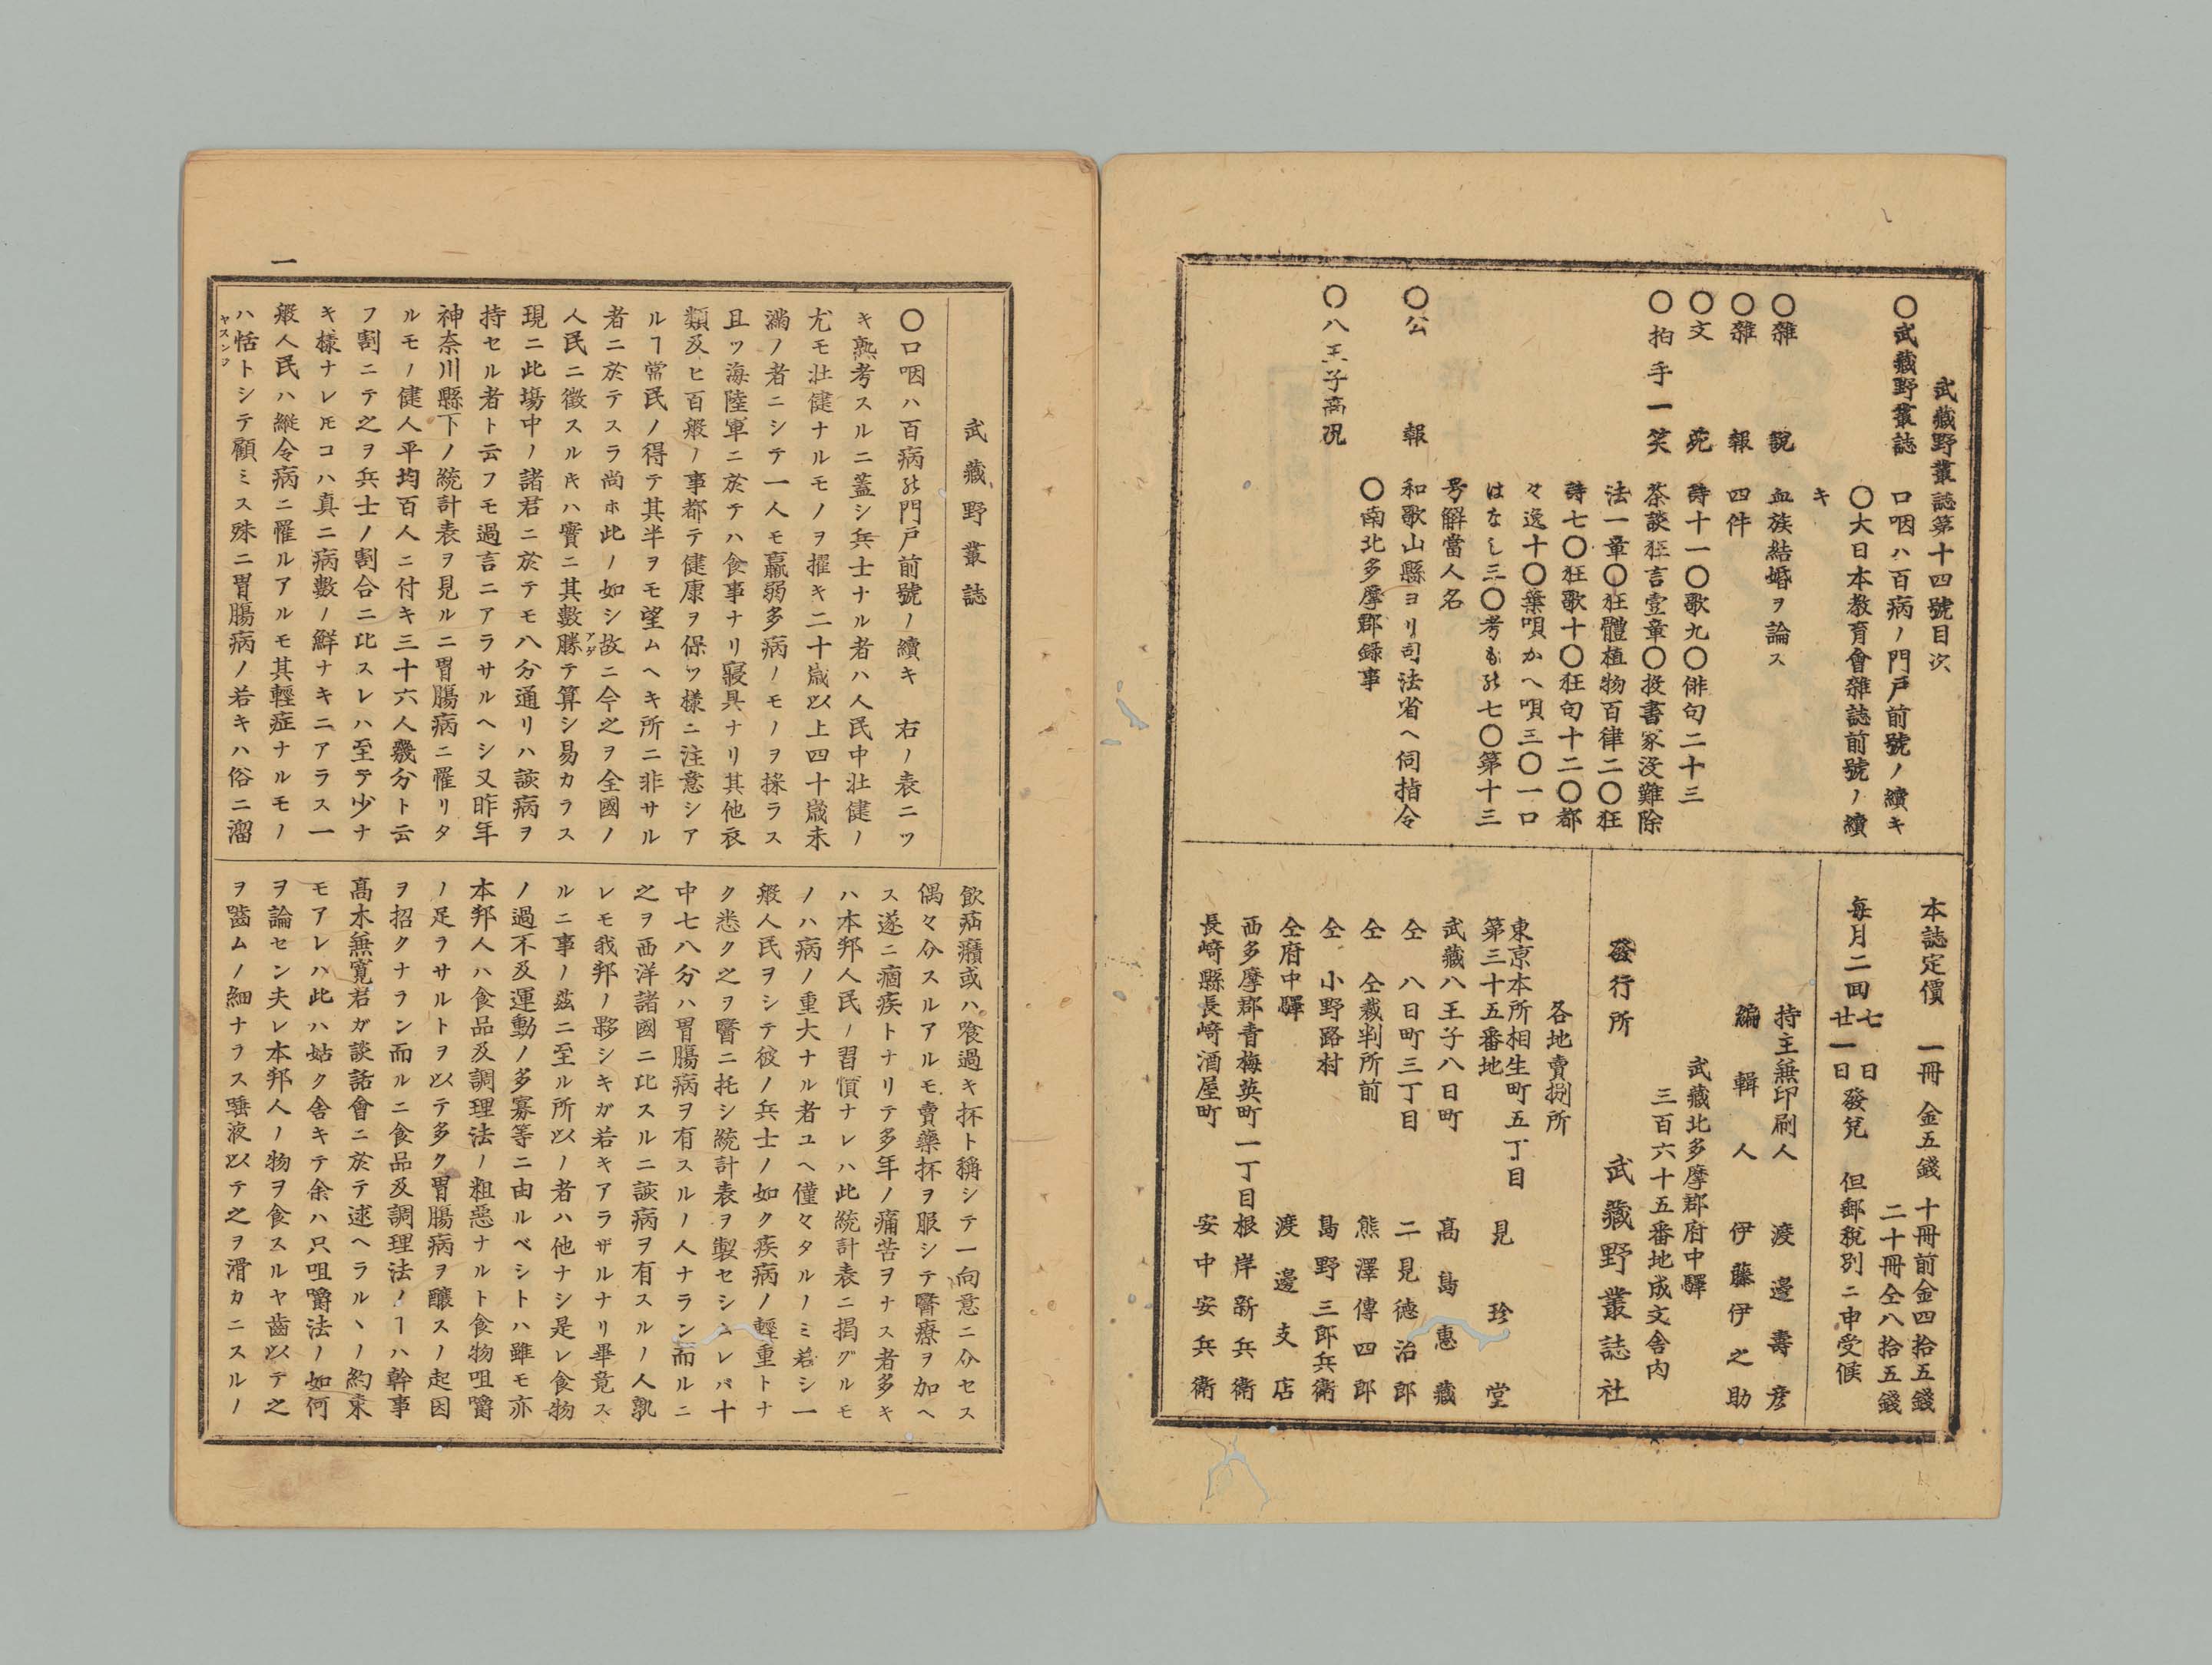 武藏野叢誌第十四號目次
〇武藏野叢誌
口咽ハ百病ノ門戸前號ノ續キ
〇大日本教育會雜誌前號ノ續
キ
〇雜說 血族結婚ヲ論ス
〇雜報 四件
〇文苑 詩十一〇歌九〇俳句二十三
〇拍手一笑 茶談狂言壹章〇投書家没難除
法一章〇狂體植物百律二〇狂
詩七〇狂歌十〇狂句十二〇都
々逸十〇葉唄かへ唄三〇一口
はなし三〇考もの七〇第十三
号解當人名
〇公報 和歌山縣ヨリ司法省ヘ伺指令
〇南北多摩郡録事
〇八王子商況
本誌定價 一冊 金五錢 十冊前金四拾五錢
二十冊仝八拾五錢
每月二回 七日
廿一日 發兌 但郵税別ニ申受候
持主兼印刷人 渡邉壽彦
編輯人 伊藤伊之助
武藏北多摩郡府中驛
三百六十五番地成文舎内
發行所 武藏野叢誌社
各地賣捌所
東京本所相生町五丁目
第三十五番地 見珍堂
武藏八王子八日町 髙島惠藏
仝 八日町三丁目 二見徳治郎
仝 仝裁判所前 熊澤傳四郎
仝 小野路村 島野三郎兵衛
仝府中驛 渡邉支店
西多摩郡青梅英町一丁目 根岸新兵衛
長﨑縣長﨑酒屋町 安中安兵衛
武藏野叢誌
〇口咽ハ百病の門戸前號ノ續キ 右ノ表ニツ
キ熟考スルニ蓋シ兵士ナル者ハ人民中壯健ノ
尤モ壯健ナルモノヲ擢キ二十歳以上四十歳未
滿ノ者ニシテ一人モ羸弱多病ノモノヲ採ラス
且ツ海陸軍ニ於テハ食事ナリ寢具ナリ其他衣
類及ヒ百般ノ事都テ健康ヲ保ツ樣ニ注意シア
ルヿ常民ノ得テ其半ヲモ望ムヘキ所ニ非サル
者ニ於テスラ尚ホ此ノ如シ故ニ今之ヲ全國ノ
人民ニ徵スルキハ實ニ其數勝アゲテ算シ易カラス
現ニ此場中ノ諸君ニ於テモ八分通リハ該病ヲ
持セル者ト云フモ過言ニアラサルヘシ又昨年
神奈川縣下ノ統計表ヲ見ルニ胃膓病ニ罹リタ
ルモノ健人平均百人ニ付キ三十六人幾分ト云
フ割ニテ之ヲ兵士ノ割合ニ比スレハ至テ少ナ
キ樣ナレ𪜈コハ真ニ病數ノ鮮ナキニアラス一
般人民ハ縱令病ニ罹ルアルモ其輕症ナルモノ
ハ恬ヤスンフトシテ顧ミス殊ニ胃膓病ノ若キハ俗ニ溜
飲疝癪或ハ喰過キ抔ト稱シテ一向意ニ介セス
偶々介スルアルモ賣藥抔ヲ服シテ醫療ヲ加ヘ
ス遂ニ痼疾トナリテ多年ノ痛苦ヲナス者多キ
ハ本邦人民ノ習慣ナレハ此統計表ニ揭グルモ
ノハ病ノ重大ナル者ユヘ僅々タルノミ若シ一
般人民ヲシテ彼ノ兵士ノ如ク疾病ノ輕重トナ
ク悉ク之ヲ醫ニ托シ統計表ヲ製セシムレバ十
中七八分ハ胃膓病ヲ有スルノ人ナラン而ルニ
之ヲ西洋諸國ニ比スルニ該病ヲ有スルノ人孰
レモ我邦ノ夥シキガ若キアラザルナリ畢竟ス
ルニ事ノ茲ニ至ル所以ノ者ハ他ナシ是レ食物
ノ過不及運動ノ多寡等ニ由ルベシトハ雖モ亦
本邦人ハ食品及調理法ノ粗惡ナルト食物咀嚼
ノ足ラサルトヲ以テ多ク胃膓病ヲ釀スノ起因
ヲ招クナラン而ルニ食品及調理法ノヿハ幹事
髙木兼寛君ガ談話會ニ於テ逑ヘラルヽノ約束
モアレハ此ハ姑ク舎キテ余ハ只咀嚼法ノ如何
ヲ論セン夫レ本邦人ノ物ヲ食スルヤ齒以テ之
ヲ嚙ムノ細ナラス唾液以テ之ヲ滑カニスルノ
一